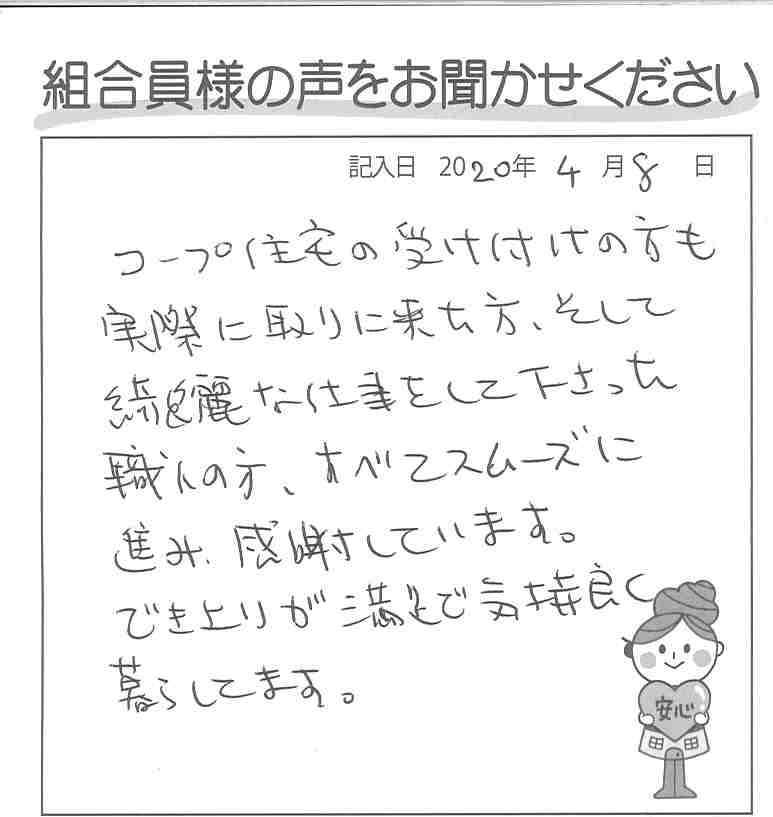 組合員様の声をお聞かせください
記入日 2020年 4月8日
コープ住宅の受け付けの方も
実際に取りに来た方、そして
綺麗な仕事をして下さった
職人の方、すべてスムーズに
進み、感謝しています。
でき上りが満足で気持良く
暮らしてます。
安心